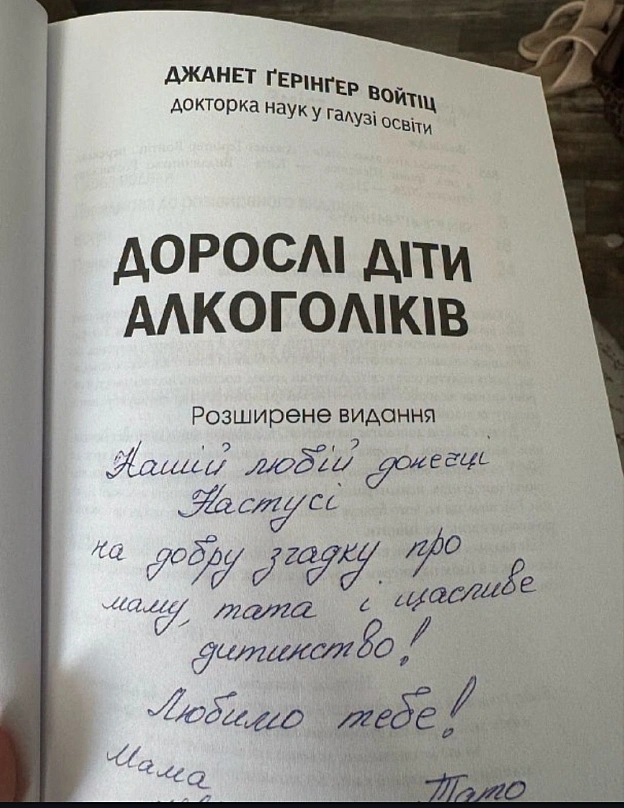 ДЖАНЕТ ҐЕРІНҐЕР ВОЙТІЦ
докторка наук у галузі освіти
ДОРОСЛІ ДІТИ
АЛКОГОЛІКІВ
Розширене видання
Нашій любій донечці
Настусі
на добру згадку про
маму, тата і щасливе
дитинство!
Любимо тебе!
Мама
Тато